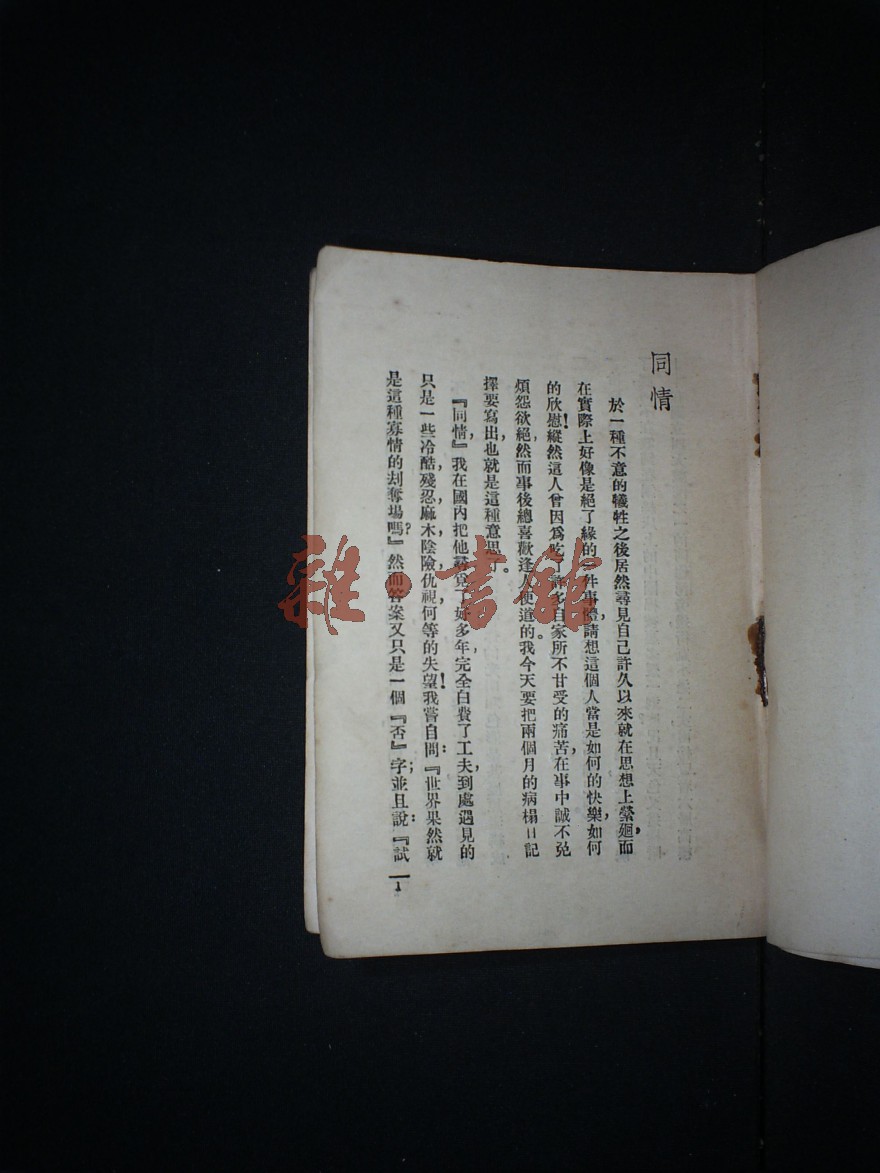 同情
於一種不意的犧牲之後居然尋見自己許久以來就在思想上縈廻而,
在實際上好像是絕了緣的一件事體,請想這個人當是如何的快樂如何
的欣慰!縱然這人曾因爲吃了許多自家所不甘受的痛苦,在事中誠不免
煩怨欲絕,然而事後總喜歡逢人便道的。我今天要把兩個月的病榻日記
擇要寫出,也就是這種意思了。
『同情』,我在國內把他尋覓了好多年,完全白費了工夫,到處遇見的
只是一些冷酷,殘忍,麻木,陰險,仇視,何等的失望!我嘗自問:『世界果然就
是這種寡情的刦奪場嗎?』然而答案又只是一個『否』字;並且說:『試
1
雜·書館